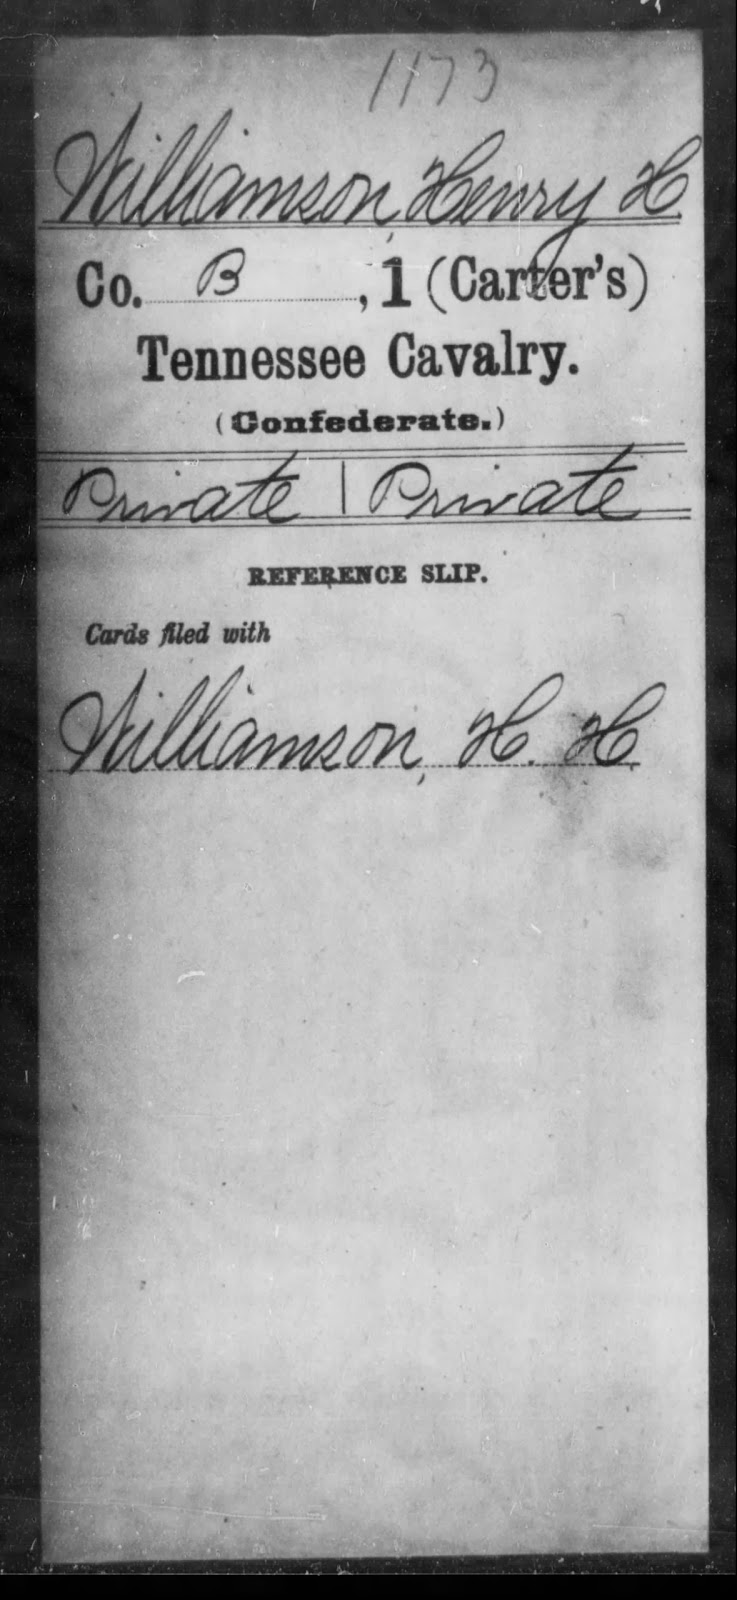 1173
Williamson, Henry H.
Co. B, 1 (Carter's)
Tennessee Cavalry.
(Confederate.)
Private | Private
REFERENCE SLIP.
Cards filed with
Williamson, H. H.